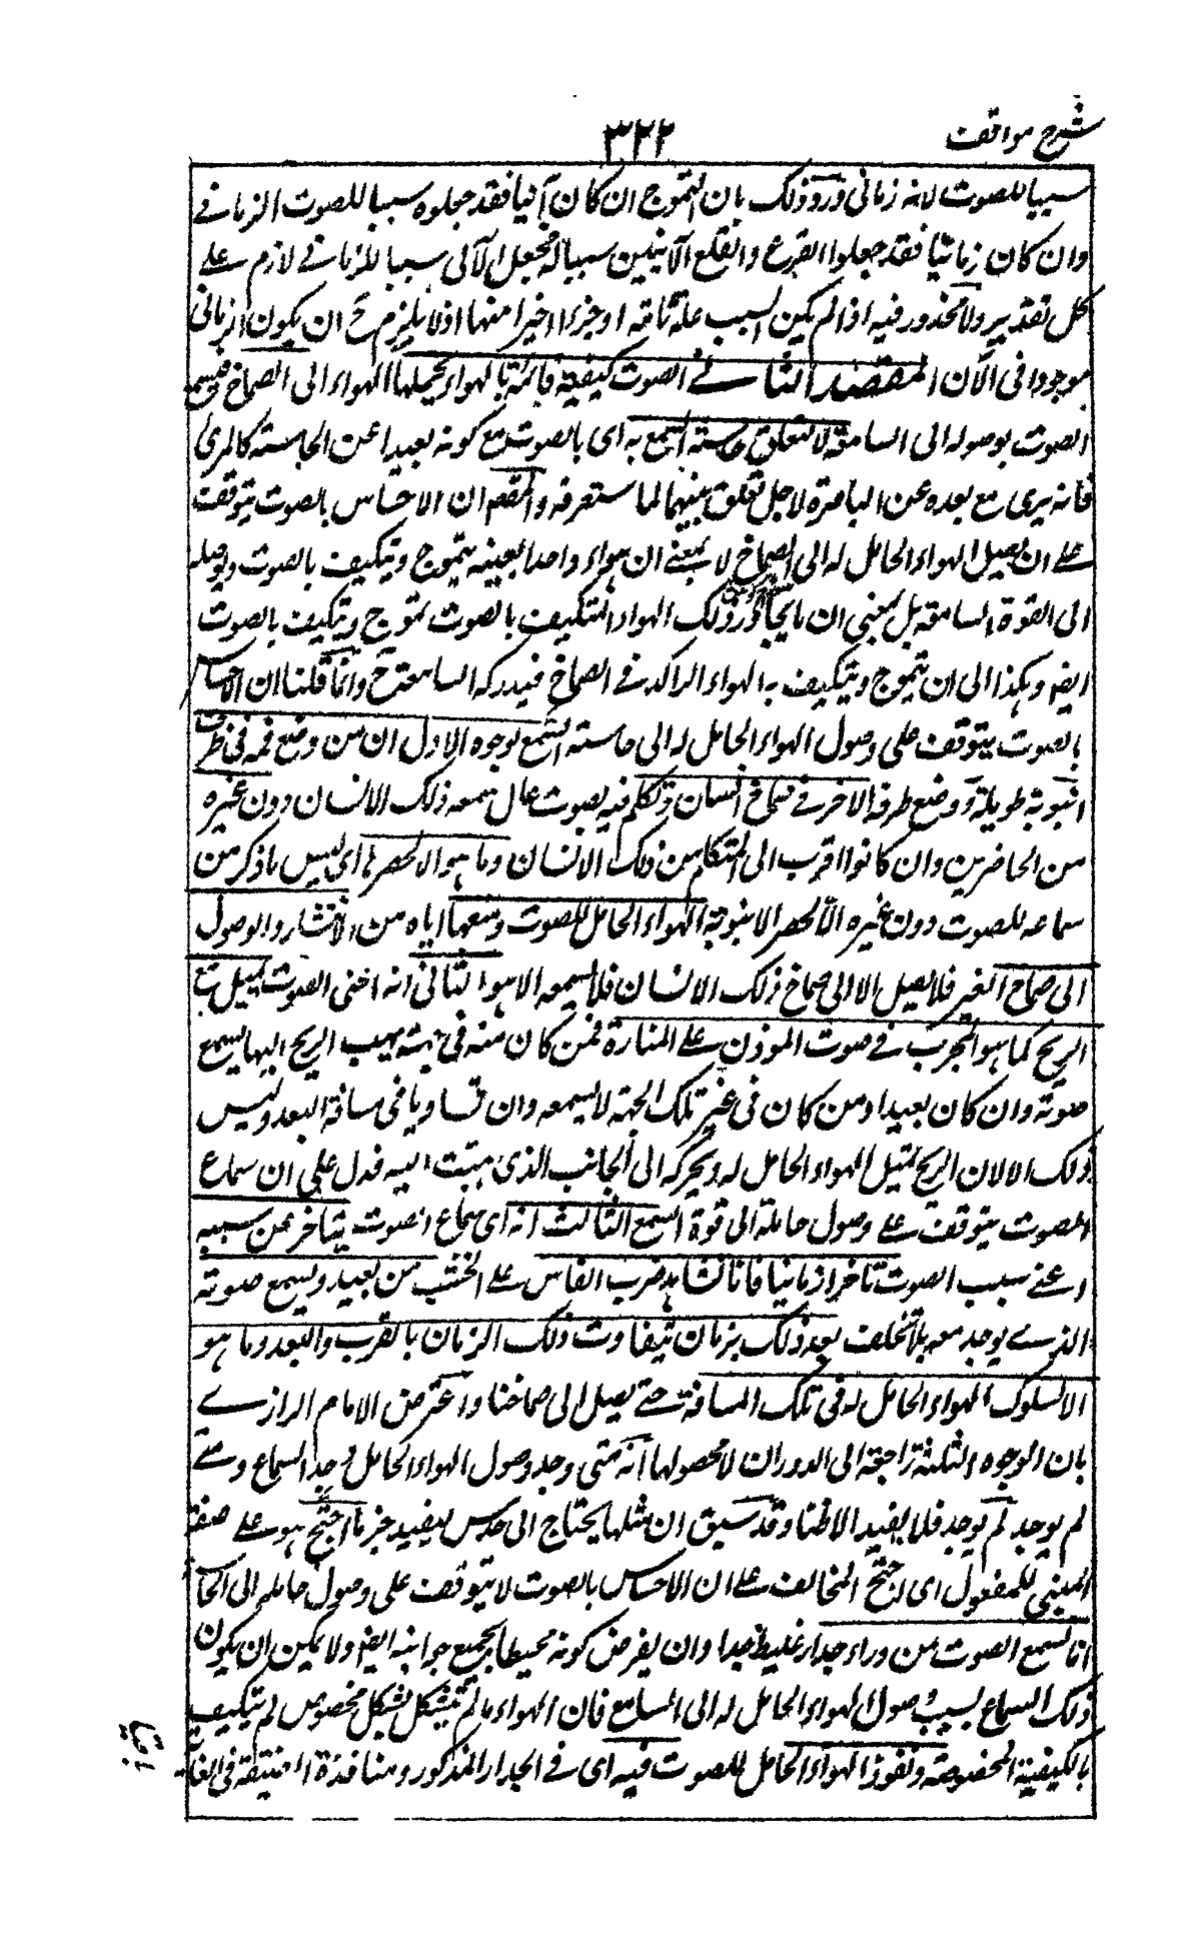 شرح مواقف
٣٢٢
سببا للصوت لانه زمانى ورد ذلك بان التموج ان كان آنيا فقد جعلوه سببا للصوت الزمانے
وان كان زمانيا فقد جعلوا القرع والقلع الآنيين سببا له فجعل الآنى سببا للزمانے لازم علے
كل تقدير ولا محذور فيه اذا لم يكن السبب علة تامة او جزءا اخيرا منها اذ لا يلزم ح ان يكون الزمانى
موجودا فى الآن المقصد الثانے الصوت كيفية قائمة بالهواء يحملها الهواء الى الصماخ فيسمع
الصوت بوصوله الى السامعة لا لتعلق حاسة السمع به اى بالصوت مع كونه بعيدا عن الحاسة كالمرئى
فانه يرى مع بعده عن الباصرة لاجل تعلق بينهما لما ستعرفه والمقصود ان الاحساس بالصوت يتوقف
علے ان يصل الهواء الحامل له الى الصماخ لا بمعنے ان هواء واحدا بعينه يتموج ويتكيف بالصوت ويوصله
الى القوة السامعة بل بمعنى ان ما يجاور ذلك الهواء المتكيف بالصوت يتموج ويتكيف بالصوت
ايضا وهكذا الى ان يتموج ويتكيف به الهواء الراكد فے الصماخ فيدركه السامعة ح وانما قلنا ان الاحساس
بالصوت يتوقف على وصول الهواء الحامل له الى حاسة السمع لوجوه الاول ان من وضع فمه فى طرف
انبوبة طويلة ووضع طرفه الآخر فے صماخ انسان وتكلم فيه بصوت عال سمعه ذلك الانسان دون غيره
من الحاضرين وان كانوا اقرب الى المتكلم من ذلك الانسان وما هو الا لحصرها اى ليس ما ذكر من
سماعه للصوت دون غيره الا لحصر الانبوبة الهواء الحامل للصوت ومنعها اياه من الانتشار والوصول
الى صماخ الغير فلا يصل الا الى صماخ ذلك الانسان فلا يسمعه الا هو الثانى انه اى الصوت يميل مع
الريح كما هو المجرب فے صوت الموذن علے المنارة فمن كان منه فى جهة يهب الريح اليها يسمع
صوته وان كان بعيدا ومن كان فى غير تلك الجهة لا يسمعه وان تساويا فى مسافة البعد وليس
ذلك الا لان الريح تميل الهواء الحامل له ويحركه الى الجانب الذى هبت اليه فدل على ان سماع
الصوت يتوقف علے وصول حامله الى قوة السمع الثالث انه اى سماع الصوت يتاخر عن سببه
اعنے سبب الصوت تاخرا زمانيا فانا نشاهد ضرب الفاس علے الخشب من بعيد ويسمع صوته
الذے يوجد معه بلا تخلف بعد ذلك بزمان يتفاوت ذلك الزمان بالقرب والبعد وما هو
الا لسلوك الهواء الحامل له فى تلك المسافة حتے يصل الى صماخنا واعترض الامام الرازے
بان الوجوه الثلثة راجعة الى الدوران لا محصولها انه متى وجد وصول الهواء الحامل وجد السماع ومتے
لم يوجد لم يوجد فلا يفيد الا ظنا وقد سبق ان مثلها يحتاج الى حدس ليفيد جزما احتج هو علے صيغة
المبنى للمفعول اى احتج المخالف علے ان الاحساس بالصوت لا يتوقف على وصول حامله الى الحاسة
انا نسمع الصوت من وراء جدار غليظ جدا وان يفرض كونه محيطا بجميع جوانبه ايضا ولا يمكن ان يكون
ذلك السماع بسبب وصول الهواء الحامل له الى السامع فان الهواء ما لم يتشكل بشكل مخصوص لم يتكيف
بالكيفية المخصوصة ونفوذ الهواء الحامل للصوت فيه اى فے الجدار المذكور ومنافذه الضيقة فى الغاية